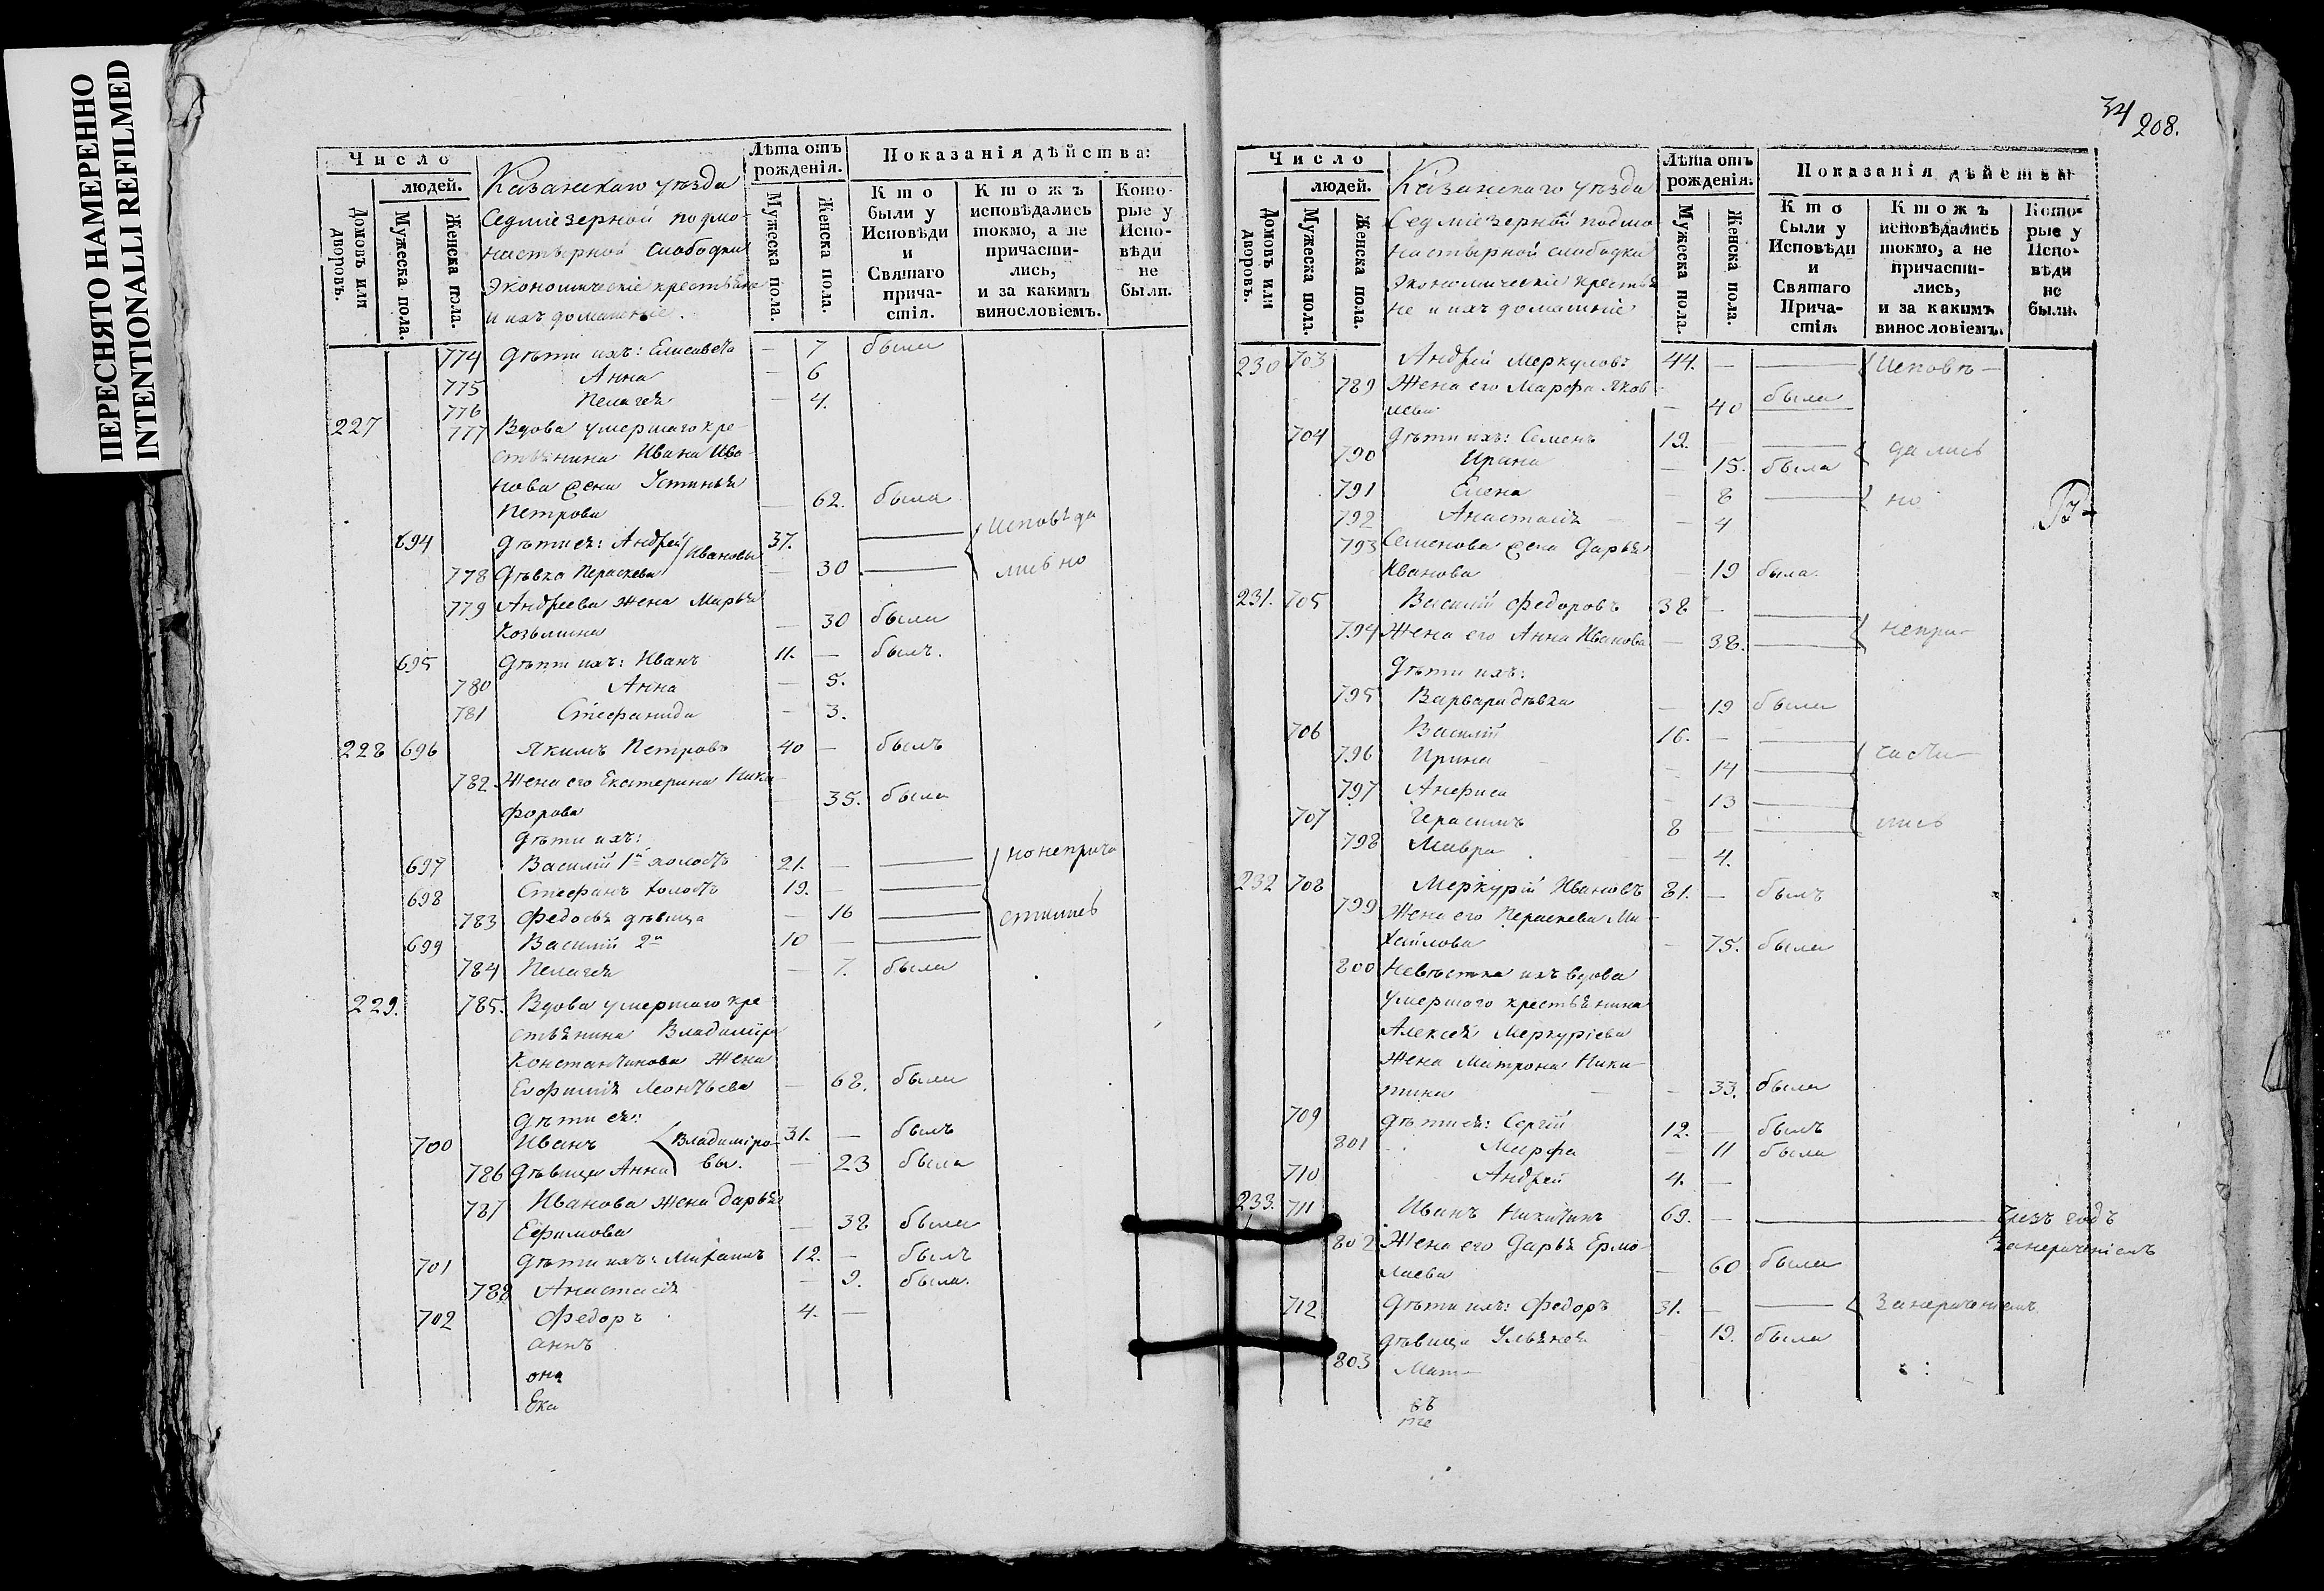 ПЕРЕСНЯТО НАМЕРЕННО
INTENTIONALLI REFILMED
Число
людей.
Домовъ или дворовъ.
Мужеска пола.
Женска пола.
Казанскаго уѣзда
Седміезерной подмо-
настырной слободки
Экономическіе крестьяне
и ихъ домашніе.
Лѣта отъ рожденія.
Мужеска пола.
Женска пола.
Показанія дѣйства:
Кто были у Исповѣди и Святаго причастія.
Ктожъ исповѣдались токмо, а не причастились, и за какимъ винословіемъ.
Которые у Исповѣди не были.
774 Дѣти ихъ: Елисавета — 7 были
775 Анна — 6
776 Пелагея — 4.
227 777 Вдова умершаго кре-
стьянина Ивана Ива-
нова жена Устинья
Петрова — 62. была
694 Дѣти ея: Андрей Ивановы 37. — исповѣда
778 Дѣвка Параскева — 30 — лись но
779 Андреева жена Марья
Козьмина — 30 была
695 Дѣти ихъ: Иванъ 11. — былъ.
780 Анна — 5.
781 Стефанида — 3.
228 696 Якимъ Петровъ 40 — былъ
782 Жена его Екатерина Ники-
форова — 35. была
Дѣти ихъ:
697 Василій 1й холостъ 21. — но неприча
698 Стефанъ холостъ 19. —
783 Федосья дѣвица — 16 — стились
699 Василій 2й 10 —
784 Пелагея — 7. была
229. 785. Вдова умершаго кре-
стьянина Владиміра
Константинова жена
Евфимія Леонтьева — 68. была
Дѣти ея:
700 Иванъ Владиміро- 31. — былъ
786 Дѣвица Анна вы. — 23 была
787 Иванова жена Дарья
Ефимова — 38 была
701 Дѣти ихъ: Михаилъ 12. — былъ
788 Анастасія — 9. была.
702 Федоръ 4. —
аннъ
она
Ека
34
208.
Число
людей.
Домовъ или дворовъ.
Мужеска пола.
Женска пола.
Казанскаго уѣзда
Седміезерной подмо-
настырной слободки
Экономическіе крестья-
не и ихъ домашніе
Лѣта отъ рожденія.
Мужеска пола.
Женска пола.
Показанія дѣйства
Кто были у Исповѣди и Святаго Причастія.
Ктожъ исповѣдались токмо, а не причастились, и за какимъ винословіемъ.
Которые у Исповѣди не были.
230 703 Андрей Меркуловъ 44. — Исповѣ-
789 Жена его Марфа Яков-
лева — 40 была
704 Дѣти ихъ: Семенъ 19. — дались
790 Ирина — 15. была
791 Елена — 8 — но
792 Анастасія — 4
793 Семенова жена Дарья
Иванова — 19 была.
231. 705 Василій Федоровъ 38 —
794 Жена его Анна Иванова — 38. — непри-
Дѣти ихъ:
795 Варвара дѣвка — 19 была
706 Василій 16. —
796 Ирина — 14 — части-
797 Анфиса — 13
707 Герасимъ 8 — лись
798 Мавра — 4.
232 708 Меркурій Ивановъ 81. — былъ
799 Жена его Параскева Ми-
хайлова — 75. была
800 Невѣстка ихъ вдова
умершаго крестьянина
Алексея Меркуріева
жена Матрона Ники-
тина — 33. была
709 Дѣти ея: Сергій 12. — былъ
801 Марфа — 11 была
710 Андрей 4. —
233. 711 Иванъ Никитинъ 69. — Чрезъ годъ
занераченіемъ
802 Жена его Дарья Ермо-
лаева — 60 была
712 Дѣти ихъ: Федоръ 31. — Занераченіемъ
дѣвица Ульянея — 19. была
803 Мат-
въ